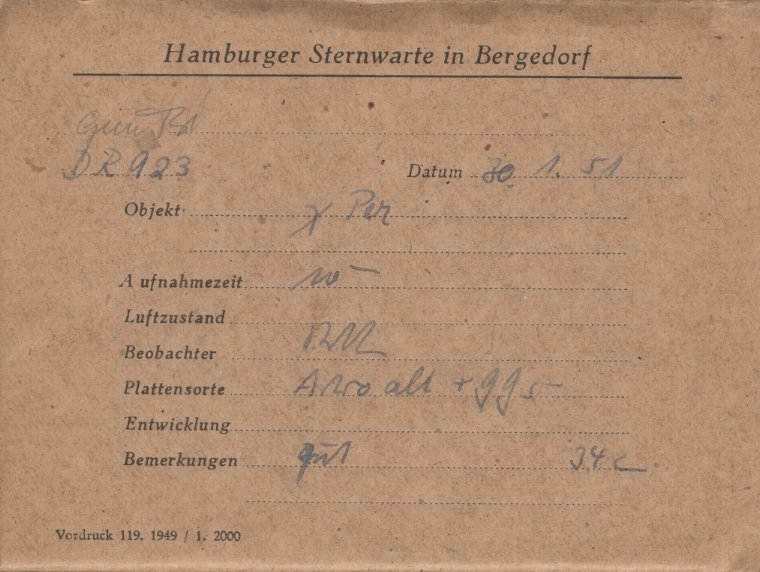 Hamburger Sternwarte in Bergedorf
DR 923 Datum 30. 1. 51
Objekt χ Per
Aufnahmezeit
Luftzustand
Beobachter
Plattensorte alt + GG5
Entwicklung
Bemerkungen gut 34c
Vordruck 119. 1949 / 1. 2000